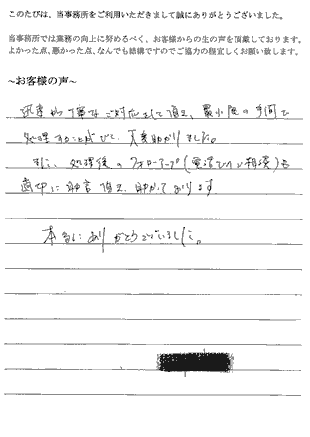 このたびは、当事務所をご利用いただきまして誠にありがとうございました。
当事務所では業務の向上に努めるべく、お客様からの生の声を頂戴しております。
よかった点、悪かった点、なんでも結構ですのでご協力の程宜しくお願い致します。
~お客様の声~
迅速かつ丁寧なご対応をして頂き、最小限の手間で
処理することができて、大変助かりました。
また、処理後のフォローアップ(電話での相談)も
適切に助言頂き、助かっております
本当にありがとうございました。